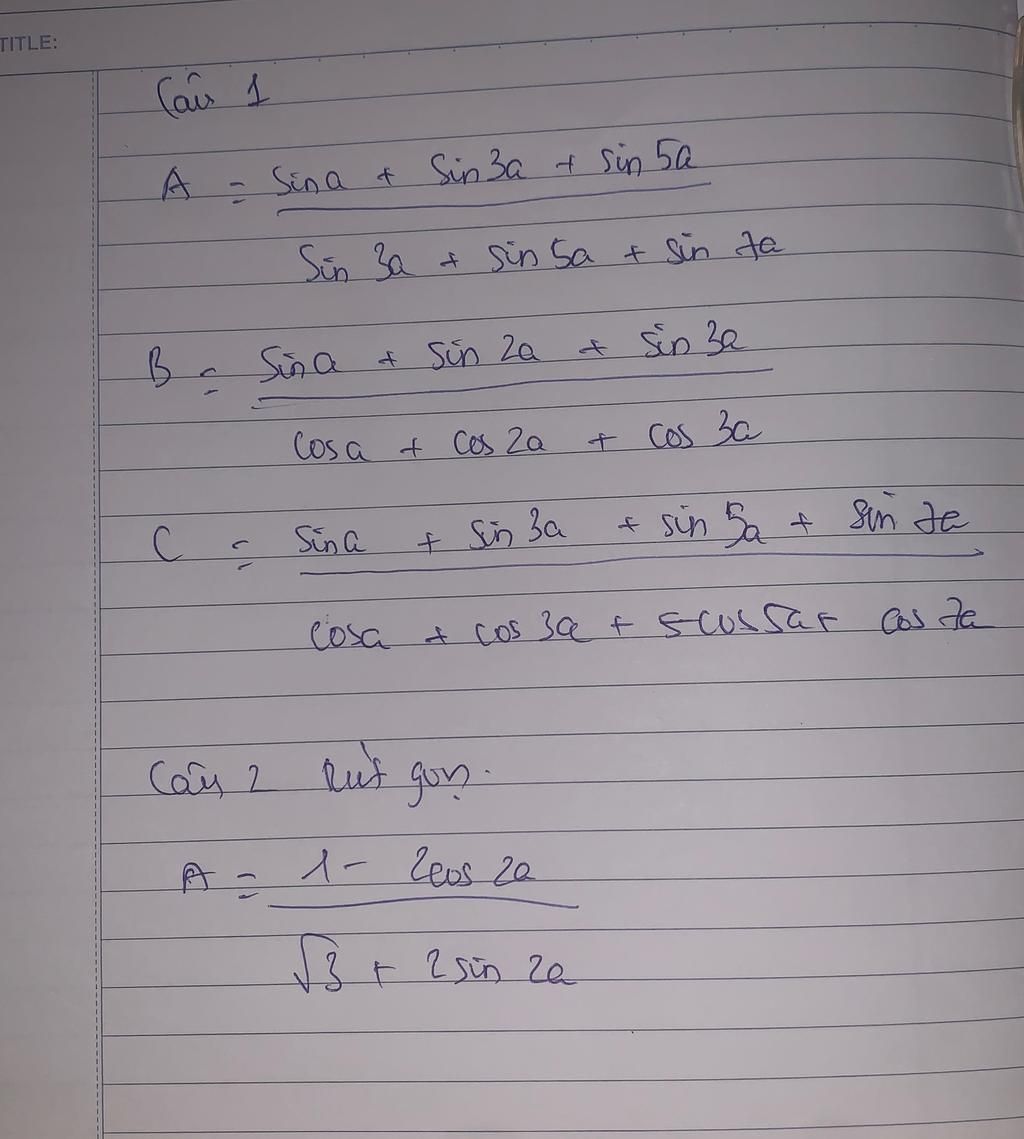 TITLE:
Câu 1
A = sin a + sin 3a + sin 5a
sin 3a + sin 5a + sin 7a
B = sin a + sin 2a + sin 3a
cos a + cos 2a + cos 3a
C = sin a + sin 3a + sin 5a + sin 7a
cos a + cos 3a + 5 cos 5a + cos 7a
Câu 2 Rút gọn.
A = 1 - 2cos 2a
√3 + 2 sin 2a